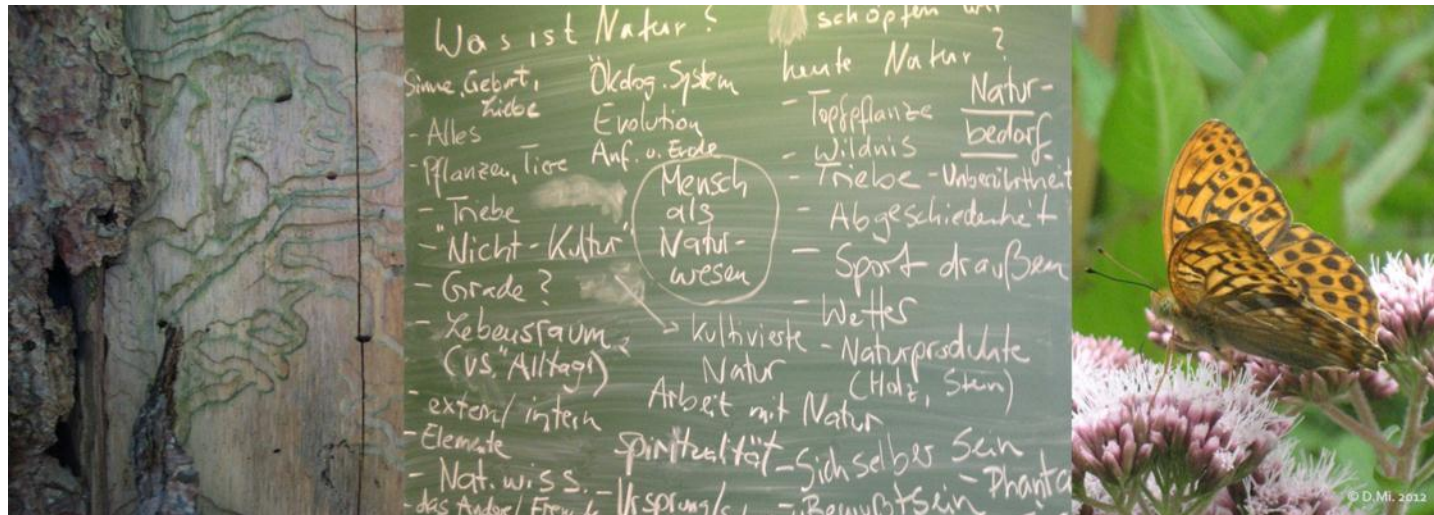 Was ist Natur?
Sinne, Geburt,
Liebe
- Alles
- Pflanzen, Tiere
- Triebe
- "Nicht-Kultur"
- Grade?
- Lebensraum
(vs. "Alltag")
- extern/intern
- Elemente
- Nat.wiss.
- das Andere/
Ökolog. System
Evolution
Anf. u. Ende
Mensch
als
Natur-
wesen
kultivierte
Natur
Arbeit mit Natur
Spiritualität
- Ursprung/
schöpfen wir
heute Natur?
- Topfpflanze
- Wildnis
- Triebe - Unberührtheit
- Abgeschiedenheit
- Sport draußen
- Wetter
- Naturprodukte
(Holz, Stein)
- Sich selber sein
- Bewußtsein - Phanta
Natur-
bedarf
© D.Mi. 2012